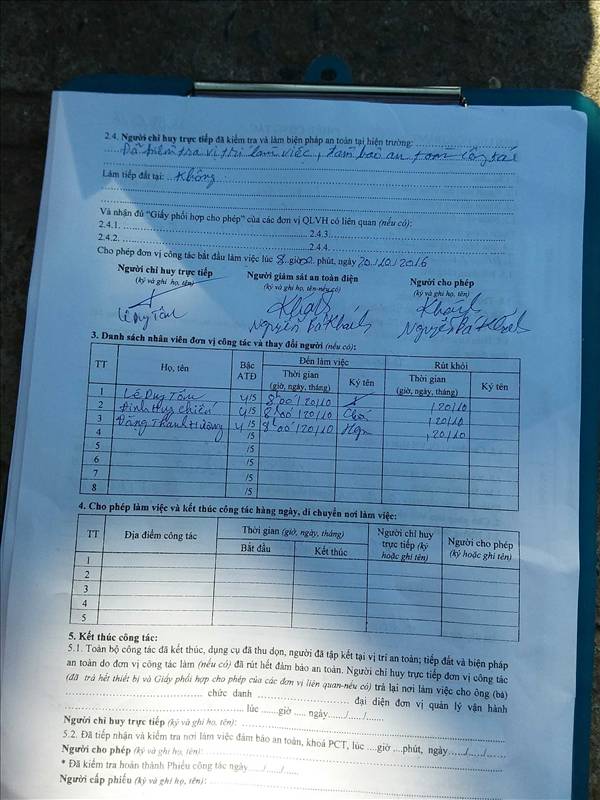 2.4. Người chỉ huy trực tiếp đã kiểm tra và làm biện pháp an toàn tại hiện trường: ............
Đã kiểm tra vị trí làm việc, đảm bảo an toàn công tác
Làm tiếp đất tại: ..Không.
Và nhận đủ "Giấy phối hợp cho phép" của các đơn vị QLVH có liên quan (nếu có):
2.4.1. ............ 2.4.3. ............
2.4.2. ............ 2.4.4. ............
Cho phép đơn vị công tác bắt đầu làm việc lúc 8 giờ 00 phút, ngày 20/10/2016
Người chỉ huy trực tiếp Người giám sát an toàn điện Người cho phép
(ký và ghi họ, tên) (ký và ghi họ, tên-nếu có) (ký và ghi họ, tên)
Lê Duy Tôn Nguyễn Bá Khánh Nguyễn Bá Khánh
3. Danh sách nhân viên đơn vị công tác và thay đổi người (nếu có):
TT Họ, tên Bậc ATĐ Đến làm việc Rút khỏi
Thời gian (giờ, ngày, tháng) Ký tên Thời gian (giờ, ngày, tháng) Ký tên
1 Lê Duy Tôn 4/5 8h00'/20/10 /20/10
2 Đinh Huy Chiến 4/5 8h00'/20/10 /20/10
3 Đặng Thanh Hương 4/5 8h00'/20/10 /20/10
4 /5
5 /5
6 /5
7 /5
8 /5
4. Cho phép làm việc và kết thúc công tác hàng ngày, di chuyển nơi làm việc:
TT Địa điểm công tác Thời gian (giờ, ngày, tháng) Người chỉ huy trực tiếp (ký hoặc ghi tên) Người cho phép (ký hoặc ghi tên)
Bắt đầu Kết thúc
1
2
3
4
5
5. Kết thúc công tác:
5.1. Toàn bộ công tác đã kết thúc, dụng cụ đã thu dọn, người đã tập kết tại vị trí an toàn; tiếp đất và biện pháp
an toàn do đơn vị công tác làm (nếu có) đã rút hết đảm bảo an toàn. Người chỉ huy trực tiếp đơn vị công tác
(đã trả hết thiết bị và Giấy phối hợp cho phép của các đơn vị liên quan-nếu có) trả lại nơi làm việc cho ông (bà)
............ chức danh ............ đại diện đơn vị quản lý vận hành
............ lúc ......giờ .... ngày...../...../......
Người chỉ huy trực tiếp (ký và ghi họ, tên): ............
5.2. Đã tiếp nhận và kiểm tra nơi làm việc đảm bảo an toàn, khoá PCT, lúc ....giờ ....phút, ngày...../...../......
Người cho phép (ký và ghi họ, tên): ............
* Đã kiểm tra hoàn thành Phiếu công tác ngày...../...../.....
Người cấp phiếu (ký và ghi họ, tên): ............